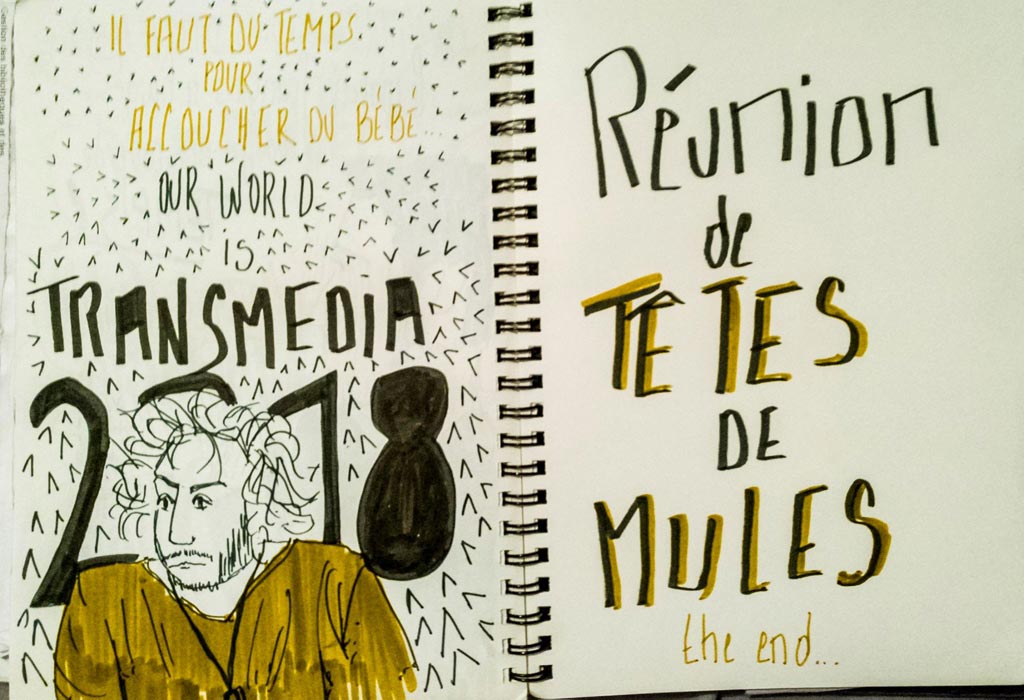 IL FAUT DU TEMPS
POUR
ACCOUCHER DU BÉBÉ...
OUR WORLD
IS
TRANSMEDIA
2018
Réunion
de
TÊTES
DE
MULES
the end...